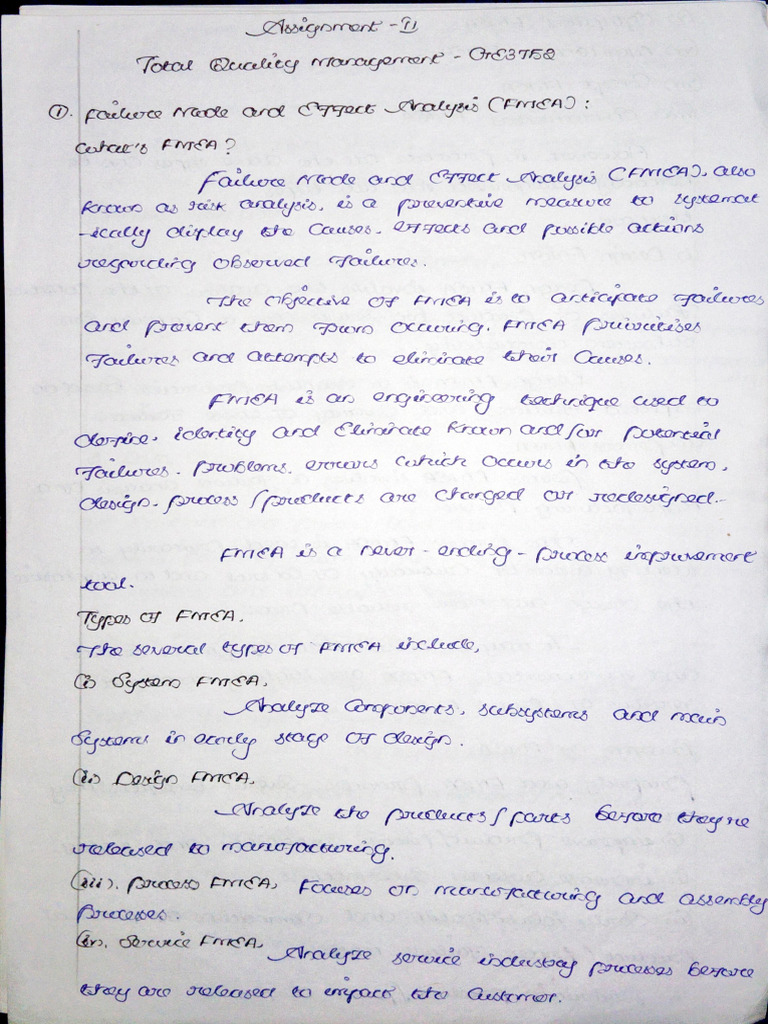 Assignment - II
Total Quality Management - GE3752
①. Failure Mode and Effect Analysis (FMEA) :
What's FMEA?
Failure Mode and Effect Analysis (FMEA), also
known as risk analysis, is a preventive measure to systemat
-ically display the causes, effects and possible actions
regarding observed failures.
The objective of FMEA is to anticipate failures
and prevent them from occuring. FMEA prioritises
failures and attempts to eliminate their causes.
FMEA is an engineering technique used to
define, identity and eliminate known and/or potential
failures, problems, errors which occurs in the system,
design, process/products are changed or redesigned.
FMEA is a never-ending-process improvement
tool.
Types of FMEA,
The several types of FMEA include,
(i) System FMEA,
Analyze Components, subsystems and main
systems in early stage of design.
(ii) Design FMEA,
Analyze the products/parts before they're
released to manufacturing.
(iii). process FMEA, Focuses on manufacturing and assembly
processes.
(iv). Service FMEA,
Analyze service industry processes before
they are released to impact the Customer.